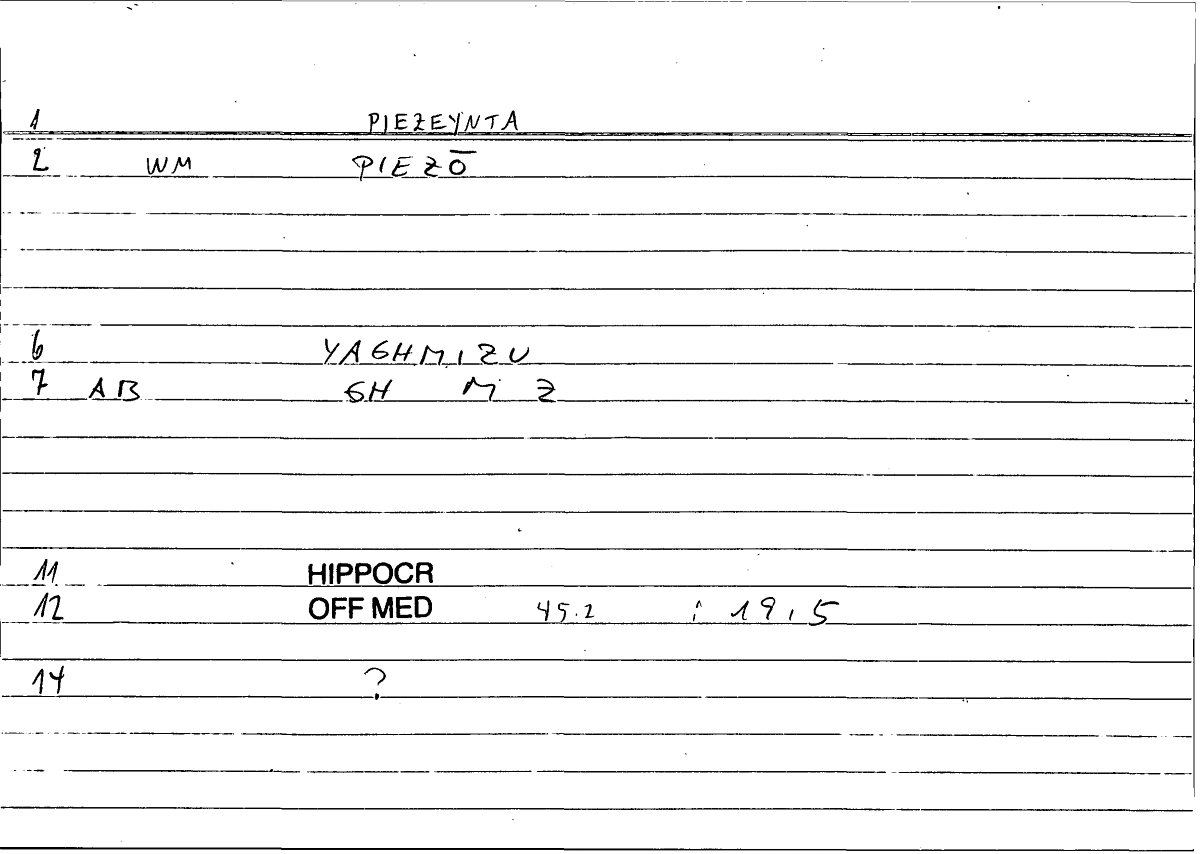 1 PIEZEYNTA
2 WM PIEZŌ
6 YAGHMIZU
7 AB GH M Z
11 HIPPOCR
12 OFF MED 45.2 : 19,5
14 ?